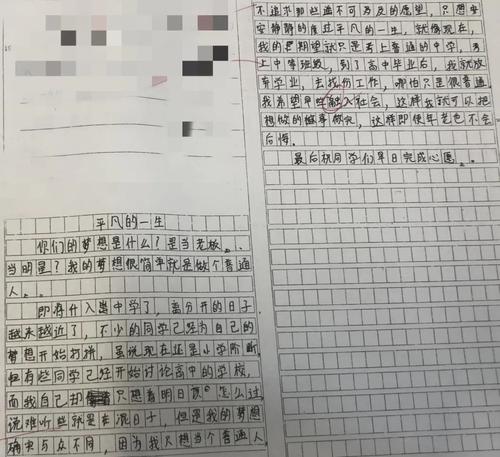 平凡的一生
你们的梦想是什么?是当老板、
当明星?我的梦想很简单就是做个普通
人。
即将什入当中学了,离分开的日子
越来越近了,不少的同学己经为自己的
梦想开始打拼,虽说现在还是小学阶断
但有些同学己经开始讨论高中的学校,
而我自己却只想着明日怎么过
说难听些就是在混日子,但是我的梦想
确实与众不同,因为我只想当个普通人
不追求那些遥不可及的愿望,只想安
安静静的度过平凡的一生,就像现在,
我的星期望就只是考上普通的中学,考
上中等班级,到了高中毕业后,我就放
弃学业,去找份工作,哪怕只是很普通。
我希望早些融入社会,这样我就可以把
想做的事做完,这样即使年老也不会
后悔。
最后祝同学们早日完成心愿。